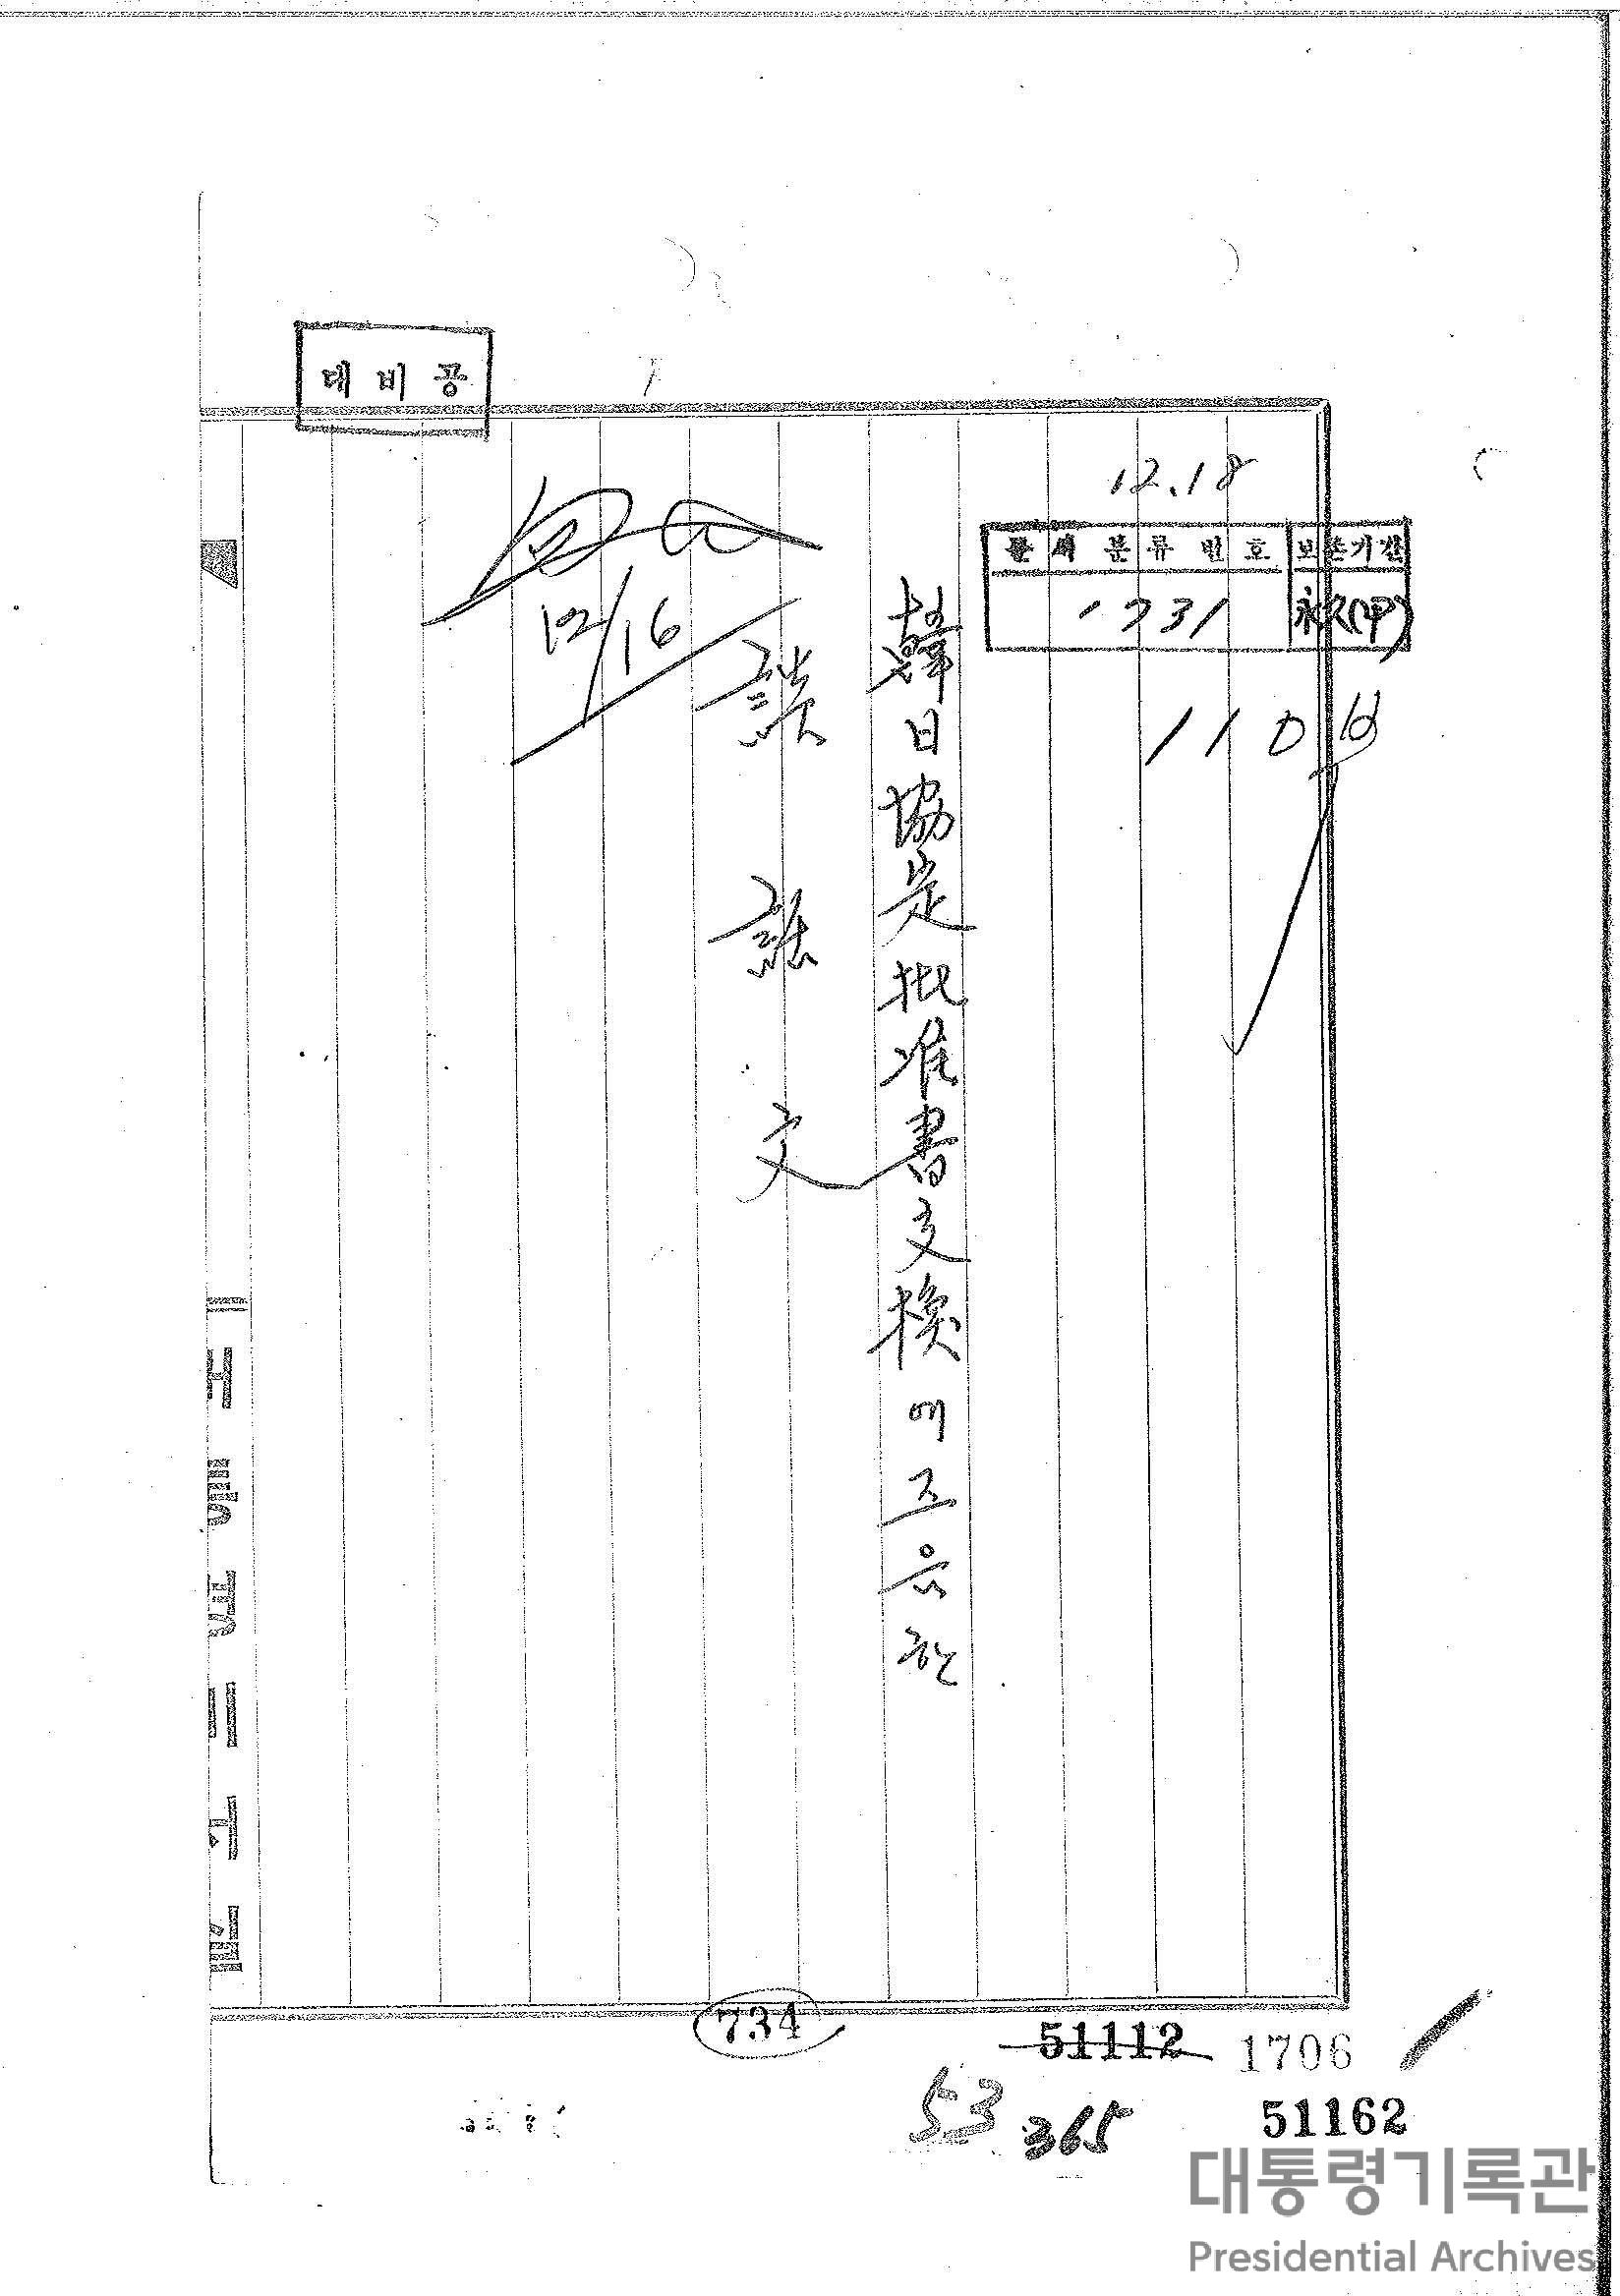 대비공
12.18
문서분류번호 보존기간
1731 永久(甲)
110
12/16
韓日協定批准書交換에즈음한
談話文
734
51112 1706
53 365
51162
대통령기록관
Presidential Archives